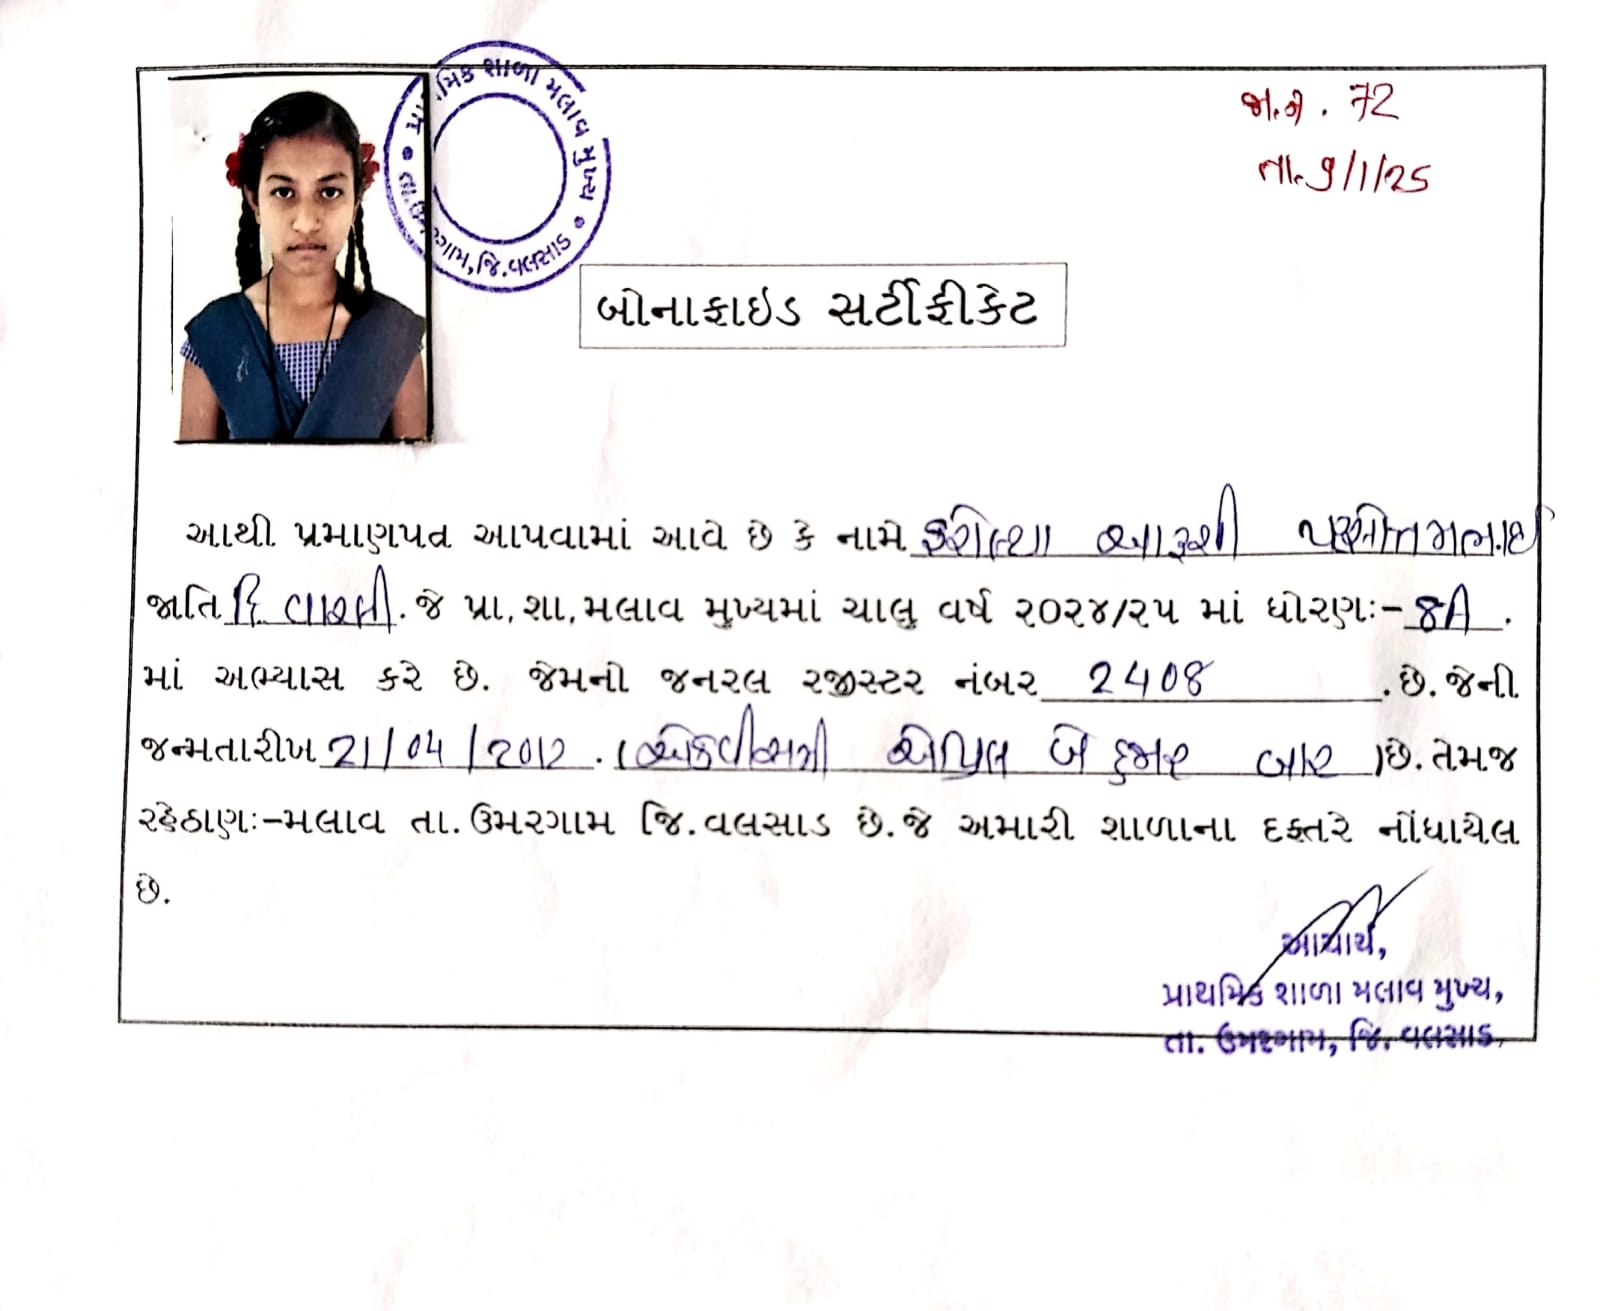 મિક શાળા મલાવ મુખ્ય • તા.ઉમરગામ, જિ.વલસાડ •
જા.નં. 72
તા. 9/1/25
બોનાફાઇડ સર્ટીફીકેટ
આથી પ્રમાણપત્ર આપવામાં આવે છે કે નામે આરૂશી
જાતિ હિ વારલી. જે પ્રા,શા,મલાવ મુખ્યમાં ચાલુ વર્ષ ૨૦૨૪/૨૫ માં ધોરણઃ- 8A .
માં અભ્યાસ કરે છે. જેમનો જનરલ રજીસ્ટર નંબર 2408 .છે. જેની
જન્મતારીખ 21/04/2012 . (એકવીસમી એપ્રિલ બે હજાર બાર )છે. તેમજ
રહેઠાણઃ-મલાવ તા. ઉમરગામ જિ.વલસાડ છે.જે અમારી શાળાના દફ્તરે નોંધાયેલ
છે.
આચાર્ય,
પ્રાથમિક શાળા મલાવ મુખ્ય,
તા. ઉમરગામ, જિ. વલસાડ.